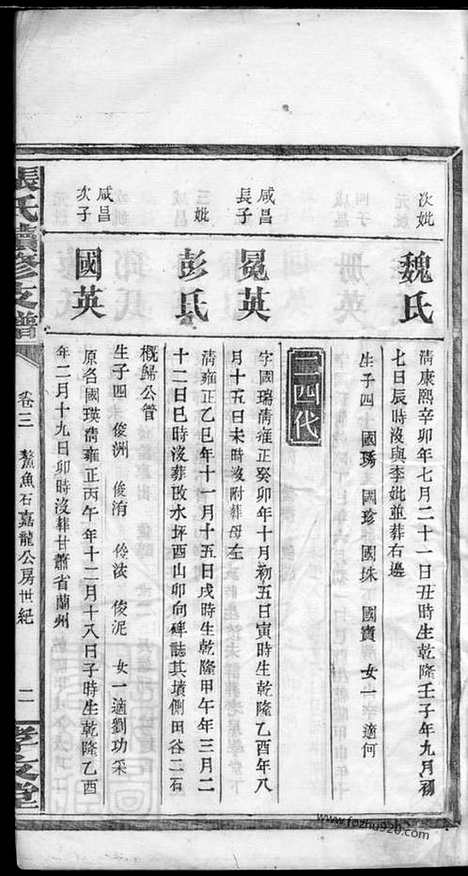 次妣
魏氏
清康熙辛卯年七月二十一日丑時生乾隆壬子年九月初
七日辰時沒與李妣並葬右邊
生子四 國瑒 國珍 國珠 國寶 女一 適何
二四代
咸昌
長子
冕英
字國瑞清雍正癸卯年十月初五日寅時生乾隆乙酉年八
月十五日未時沒附葬母左
三妣
彭氏
清雍正乙巳年十一月十五日戌時生乾隆甲午年三月二
十二日巳時沒葬政水坪酉山卯向碑誌其墳側田谷二石
概歸公管
生子四 俊洲 俊洧 俊泥 女一適劉功采
咸昌
次子
國英
原名國瑛清雍正丙午年十二月十八日子時生乾隆乙酉
年二月十九日卯時沒葬甘肅省蘭州
張氏續修支譜
卷三
鰲魚石嘉龍公房世紀
二
孝友堂
www.fozhu920.com